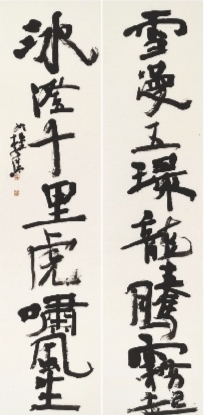 雪漫五環龍騰霧起
冰澄千里虎嘯風生